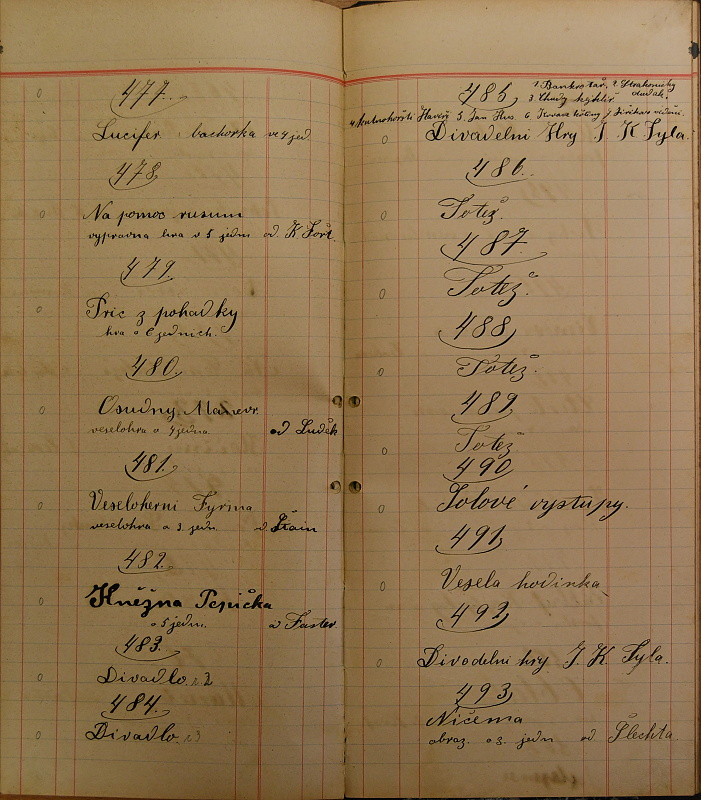 477.
Lucifer bachorka ve 4 jed.
478.
Na pomoc rusum
vypravna hra v 5 jedn od. K Fořt.
479
Pric z pohadky
hra o 6 jednich.
480.
Osudny Manevr.
veselohra o 4 jedna od Luděk
481.
Veseloherni Fyrma
veselohra o 3. jedn. od Štain
482.
Kněžna Pepička
o 5 jedn. od Faster
483.
Divadlo č. 2
484.
Divadlo č 3
485 1. Bankrotář. 2. Strakonicky
dudák.
3. Chudý kejklíř
4. Kutnohoršti Haviři 5. Jan Hus. 6. Krvavé křtiny 7 Jiříkovo vidění.
Divadelni Hry J. K Tyla.
486.
Totéž.
487.
Totéž.
488
Totéž.
489
Totéž
490
Solové vystupy.
491
Vesela hodinka
492
Divadelni hry J. K. Tyla.
493
Ničema
obraz. o 3. jedn od Šlechta.